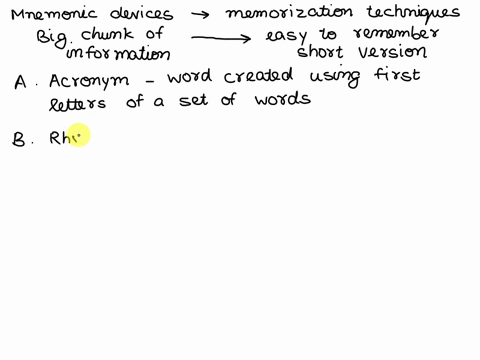 Mnemonic devices → memorization techniques
Big chunk of information → easy to remember short version
A. Acronym – word created using first
letters of a set of words
B. Rh